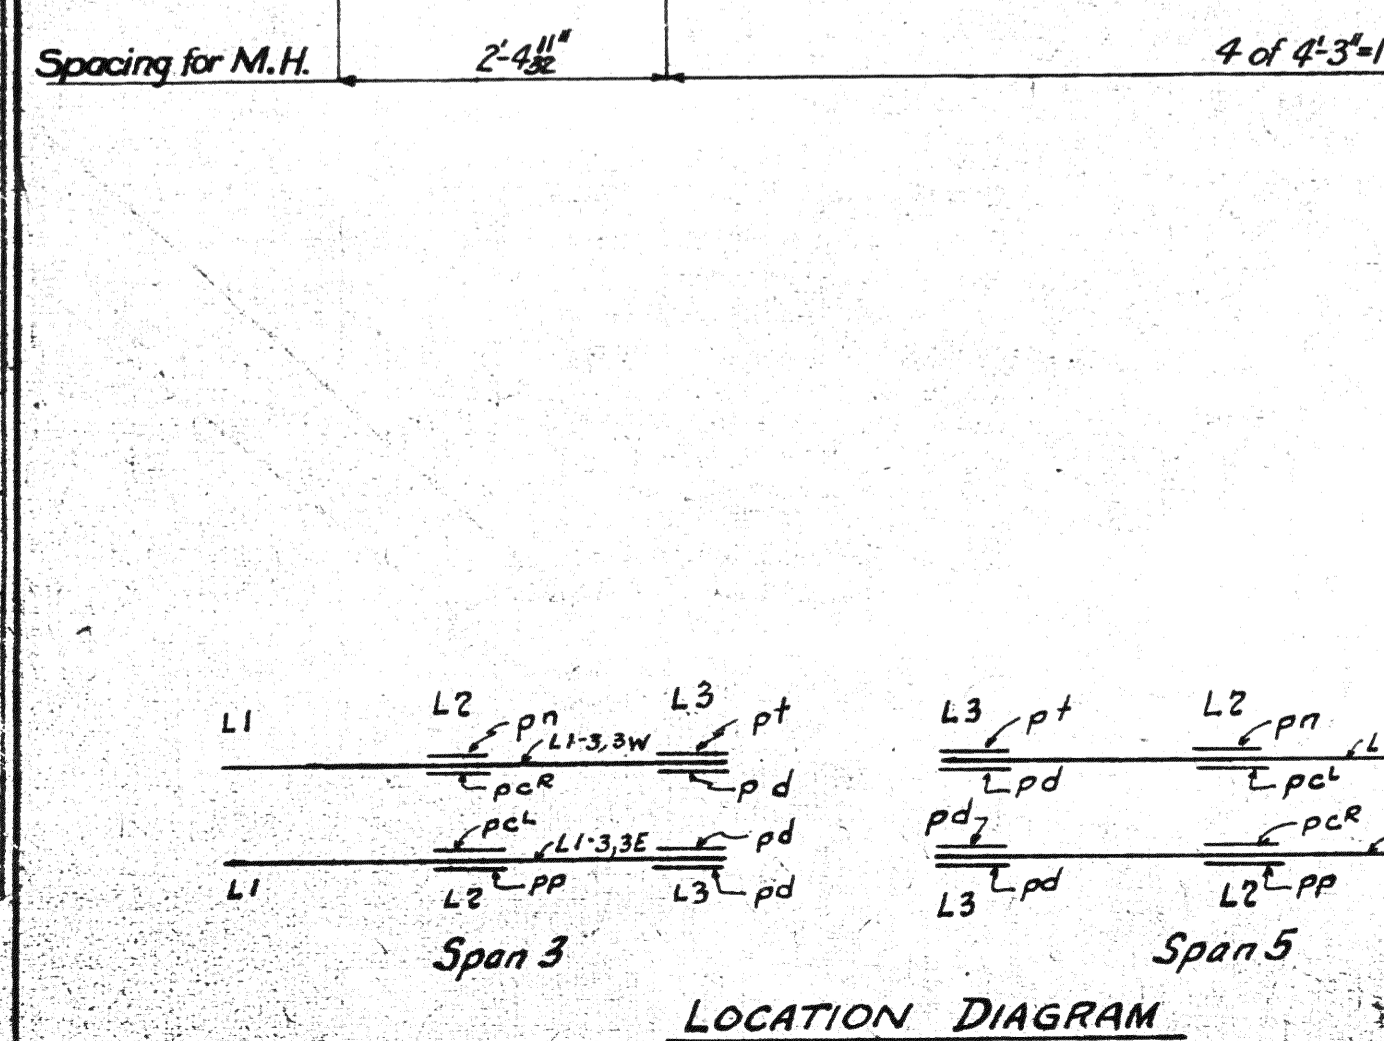 Spacing for M.H. 2'-4 11/32" 4 of 4'-3"=1
L1 L2 pn L1-3,3W L3 pt
pcR pd
pcL L1-3,3E pd
L1 L2 pp L3 pd
Span 3
L3 pt L2 pn L
pd pcL
pd pcR
L3 pd L2 pp
Span 5
LOCATION DIAGRAM